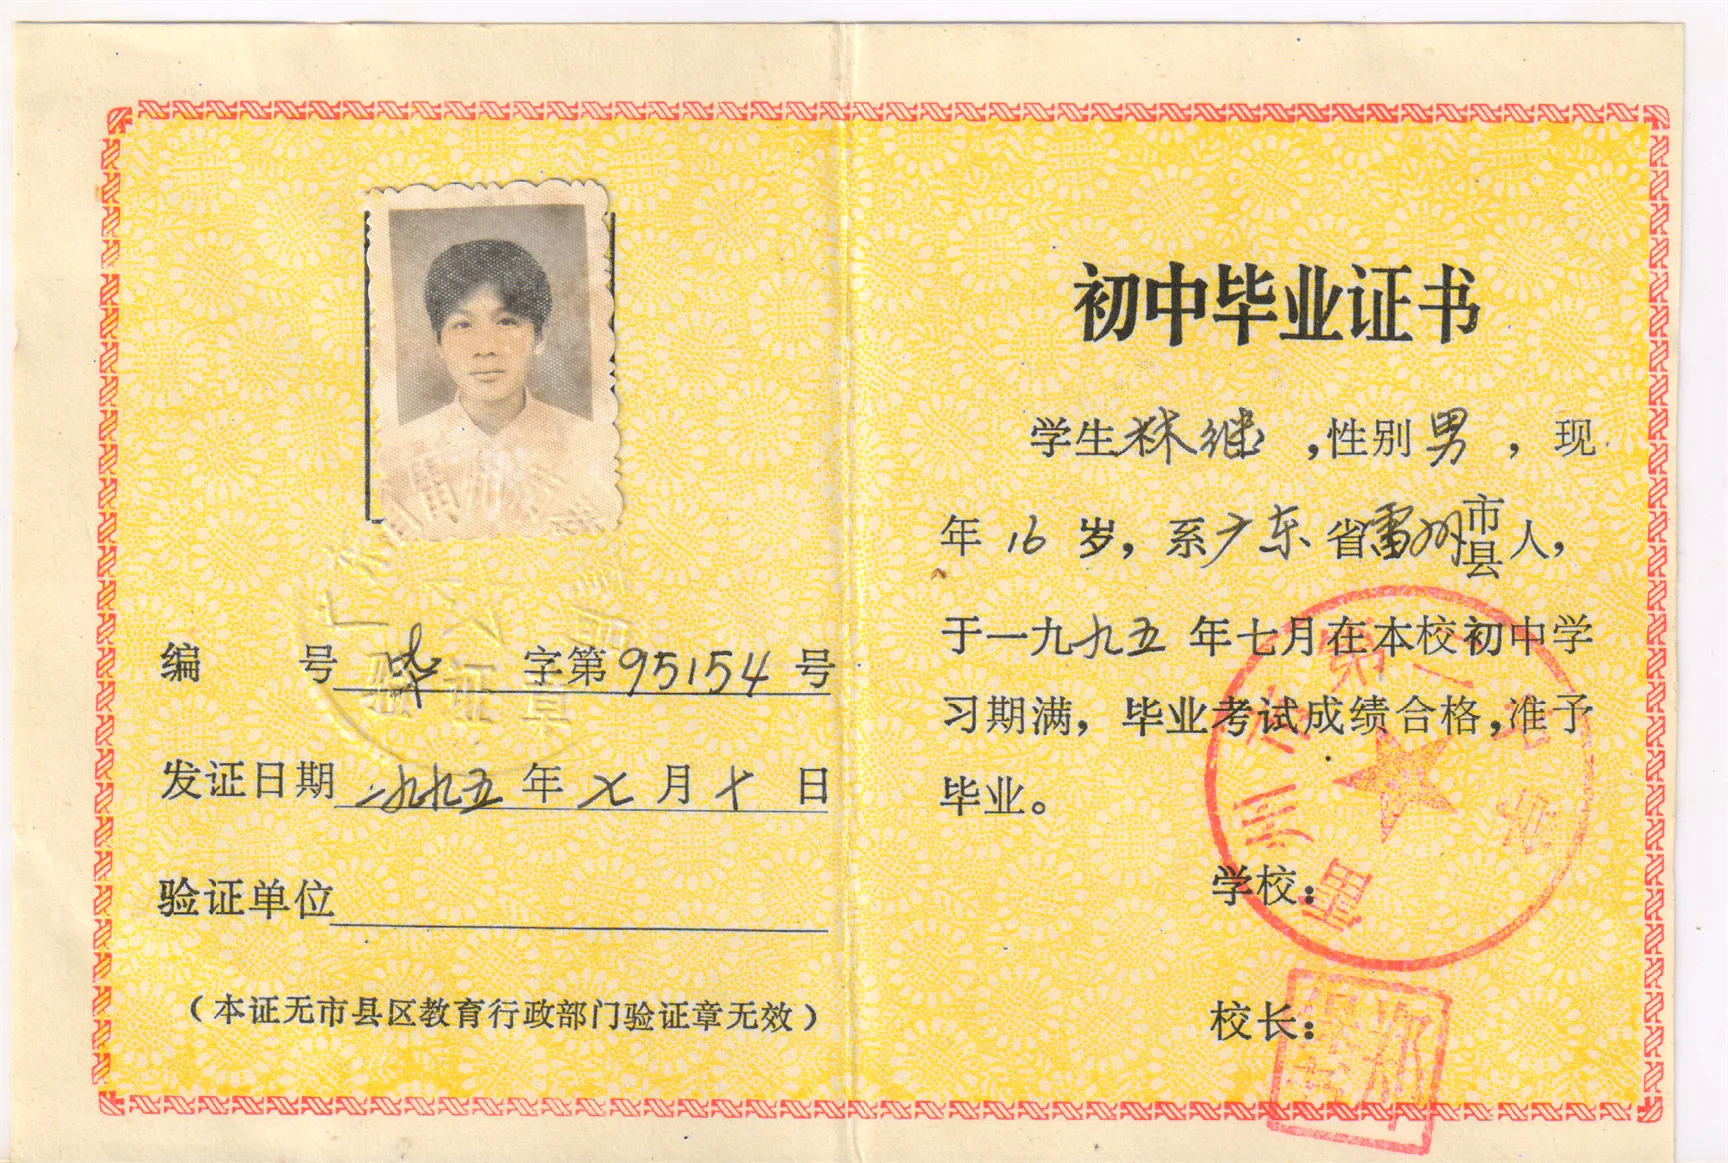 编 号 毕 字第 95154 号
发证日期 一九九五 年 七 月 十 日
验证单位
（本证无市县区教育行政部门验证章无效）
验证章
初中毕业证书
学生林继，性别男，现
年 16 岁，系广东省雷州市县人，
于一九九五年七月在本校初中学
习期满，毕业考试成绩合格，准予
毕业。
学校：
校长：